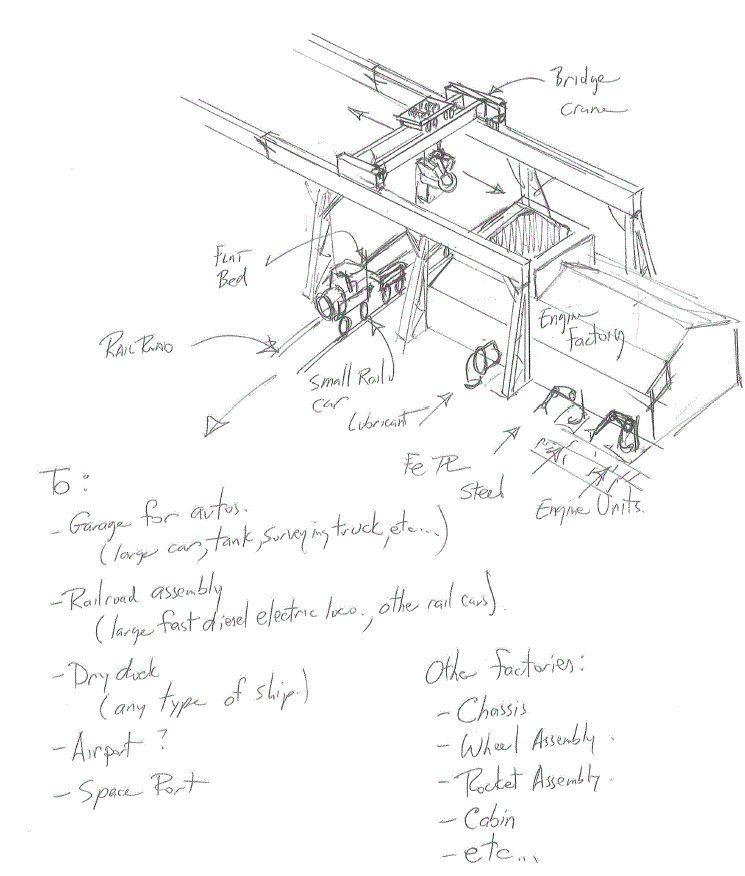 Bridge
Crane
Flat
Bed
Railroad
Small Rail
car
Lubricant
Engine
Factory
Fe PL
Steel
Engine Units.
To:
- Garage for autos.
(large car, tank, surveying truck, etc...)
- Railroad assembly
(large fast diesel electric loco., other rail cars).
- Dry dock
(any type of ship.)
- Airport ?
- Space Port
Other factories:
- Chassis
- Wheel Assembly.
- Rocket Assembly.
- Cabin
- etc...